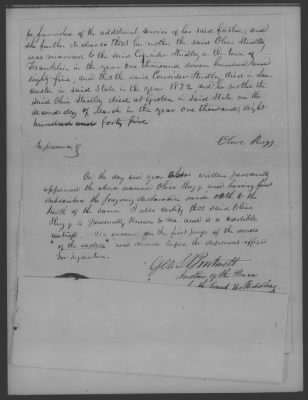 in pursuance of the additional service of his said father, and
she further declares that her mother the said Olive Studley
was married to the said Consider Studley in the town of
Franklin in the year one thousand seven hundred and
eighty five, and that the said Consider Studley died in
in said State in the year 1832 and her mother the
said Olive Studley died at Groton in said State on the
second day of March in the year one thousand, eight
hundred and forty five
In presence of
Olive Rugg
On the day and year above written personally
appeared the above named Olive Rugg and having first
subscribed the foregoing declaration made oath to the
truth of the same. I also certify that said Olive
Rugg is personally known to me and is a credible
witness. The on the first page of the words
" were made before the deponent affixed
her signature.
Geo. S.
Justice of the Peace